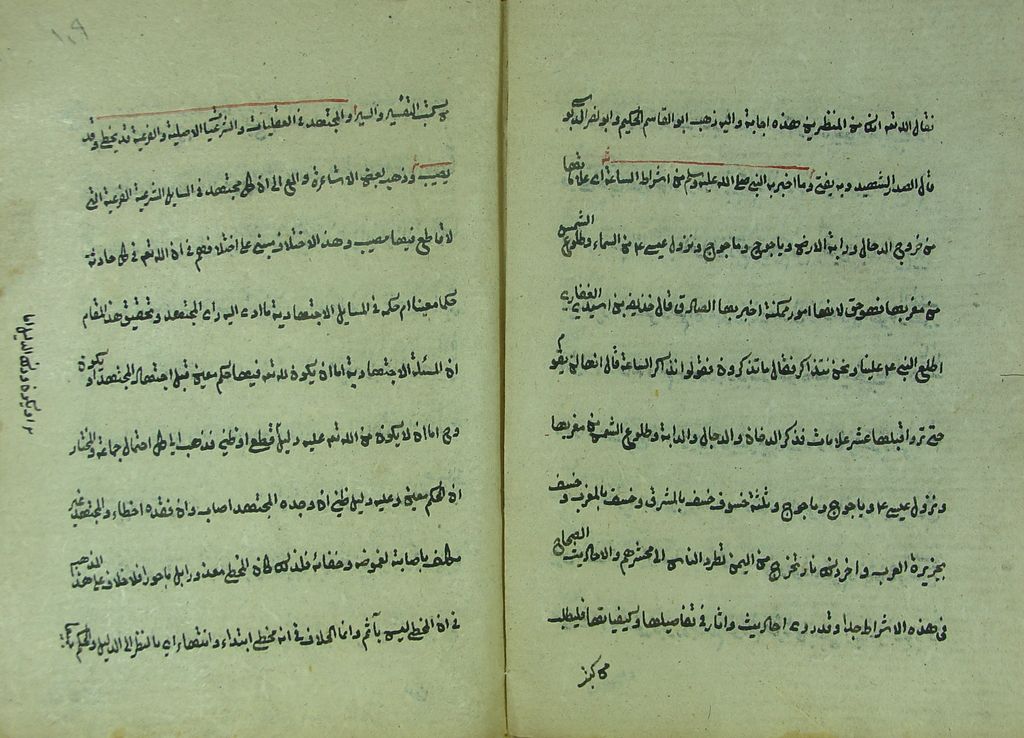 فقال الله تعه انك من المنظرين هذه اجابة واليه ذهب ابو القاسم الحكيم وابو نصر الدبوسي
قال الصدر الشهيد وبه يفتى وما اخبر به النبي صلى الله عليه وسلم من اشراط الساعة اى علاماتها
من خروج الدجال ودابة الارض وياجوج وماجوج ونزول عيسى ۴ من السماء وطلوع الشمس
من مغربها فهو حق لانها امور ممكنة اخبر بها الصادق قال حذيفة بن اسيد الغفاري
اطلع النبي ۴ علينا ونحن نتذاكر فقال ما تذكرون فقولوا نذكر الساعة قال انها لن تقوم
حتى تروا قبلها عشر علامات فذكر الدخان والدجال والدابة وطلوع الشمس من مغربها
ونزول عيسى ۴ وياجوج وماجوج وثلثة خسوف خسف بالمشرق وخسف بالمغرب وخسف
بجزيرة العرب واخر ذلك نار تخرج من اليمن تطرد الناس الى محشرهم والاحاديث الصحاح
فى هذه الاشراط جدا وقد روى احاديث واثار فى تفاصيلها وكيفياتها فليطلب
من كتب التفسير والسير والمجتهد فى العقليات والشرعيات الاصلية والفرعية قد يخطى وقد
يصيب وذهب بعض الاشاعرة و الى ان كل مجتهد فى المسايل الشرعية الفرعية التى
لا قاطع فيها مصيب وهذا الاختلاف مبنى على اختلافهم فى ان الله تعه فى كل حادثة
حكما معينا ام حكمه فى المسايل الاجتهادية ما ادى اليه راى المجتهد وتحقيق هذا المقام
ان المسئلة الاجتهادية اما ان يكون لله تعه فيها حكم معين قبل اجتهاد المجتهد او يكون
وح اما ان لا يكون من الله تعه عليه دليل قطعى او ظنى فذهب الى كل احتمال جماعة والمختار
ان الحكم معين وعليه دليل ظنى ان وجده المجتهد اصاب وان فقده اخطاء والمجتهد غير
مكلف باصابة لغموضه وخفائه فلذلك كان المخطى معذورا بل ماجورا فلا خلاف على هذا المذهب
فى ان المخطى ليس بآثم وانما الخلاف فى انه مخطى ابتداء وانتهاء اى بالنظر الى الدليل والحكم
او يكون وذلك الدليل اما